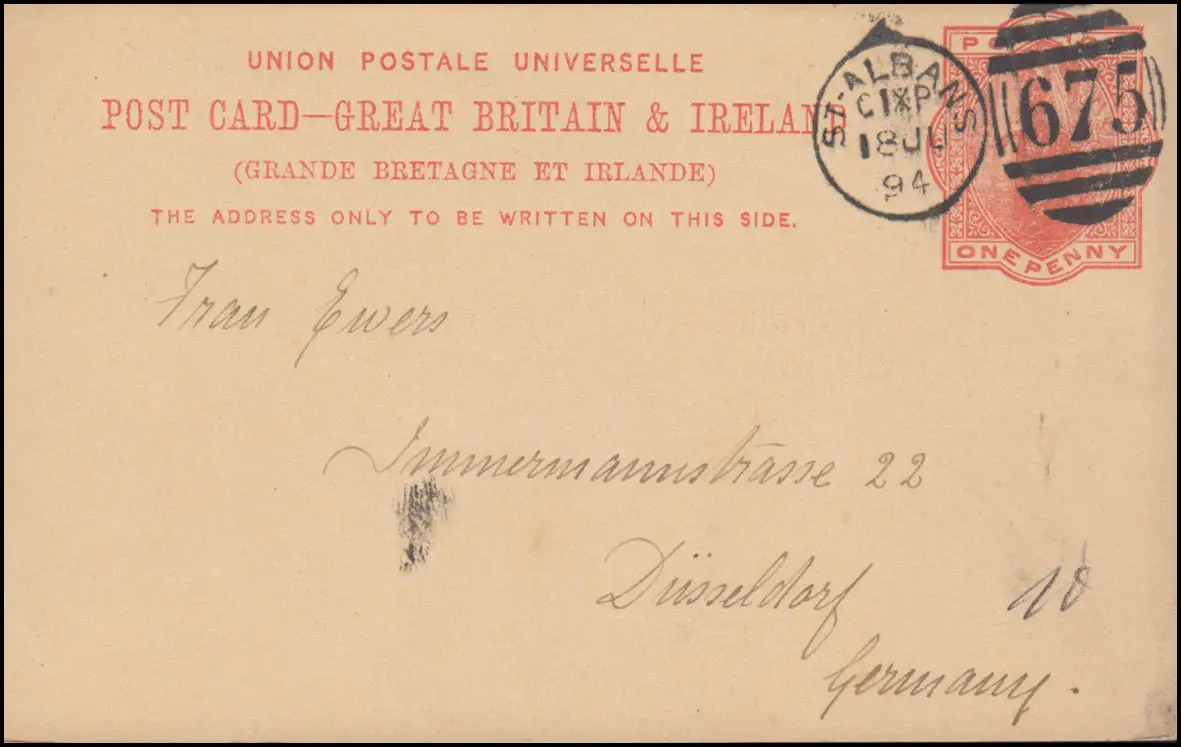 UNION POSTALE UNIVERSELLE
POST CARD—GREAT BRITAIN & IRELAN
(GRANDE BRETAGNE ET IRLANDE)
THE ADDRESS ONLY TO BE WRITTEN ON THIS SIDE.
ST. ALBANS
18 JL
94
675
ONE PENNY
Frau Ewers
Immermannstrasse 22
Düsseldorf
10
Germany.